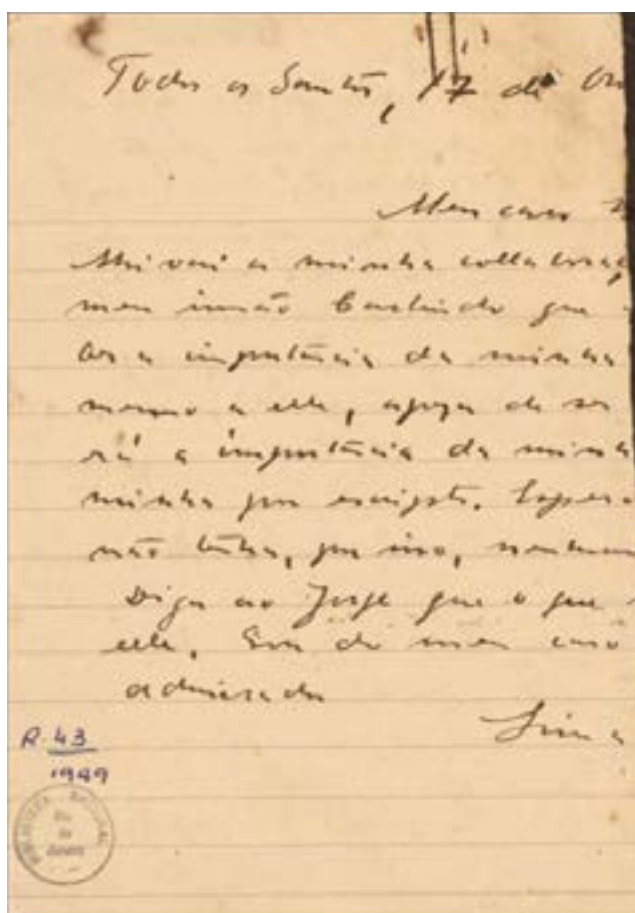 Todos os Santos, 17 de
Meu caro
Ahi vai a minha collaboraç
meu irmão Carlindo que
a importancia da minha
mesmo a elle, apezar de ser
rá a importancia da minha
minha por escripto. Espero
não tenha, por isso, nenhum
Diga ao Jorge que o que
elle. Sou do meu caro
admirador
Lima
R. 43
1949
BIBLIOTHECA NACIONAL
Rio
de
Janeiro